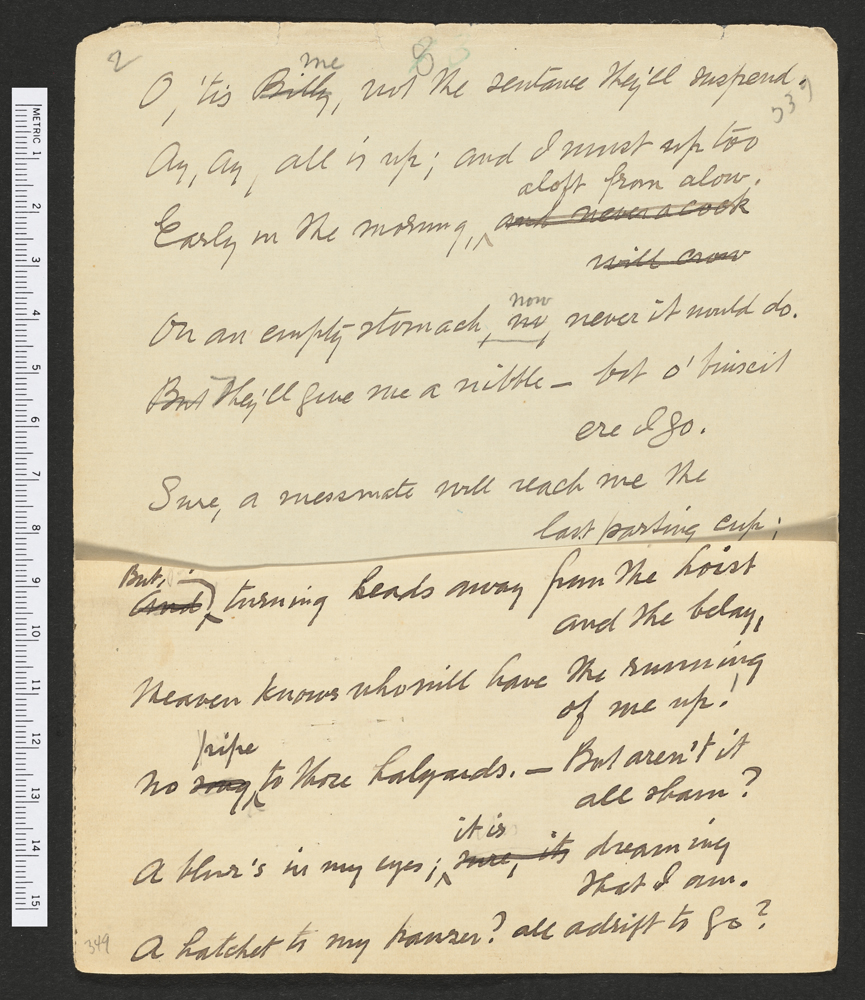 2 8 3
me
O, 'tis Billy, not the sentence they'll suspend.
339
Ay, ay, all is up; and I must up too
aloft from alow.
Early in the morning, and never a cock
will crow
now
On an empty stomach, no, never it would do.
But They'll give me a nibble — bit o' biscuit
ere I go.
Sure, a messmate will reach me the
last parting cup;
But,
And, turning heads away from the hoist
and the belay,
Heaven knows who will have the running
of me up!
pipe
No song to those halyards. — But aren't it
all sham?
it is
A blur's in my eyes; sure, its dreaming
that I am.
A hatchet to my hawser? all adrift to go?
349
METRIC 1 2 3 4 5 6 7 8 9 10 11 12 13 14 15